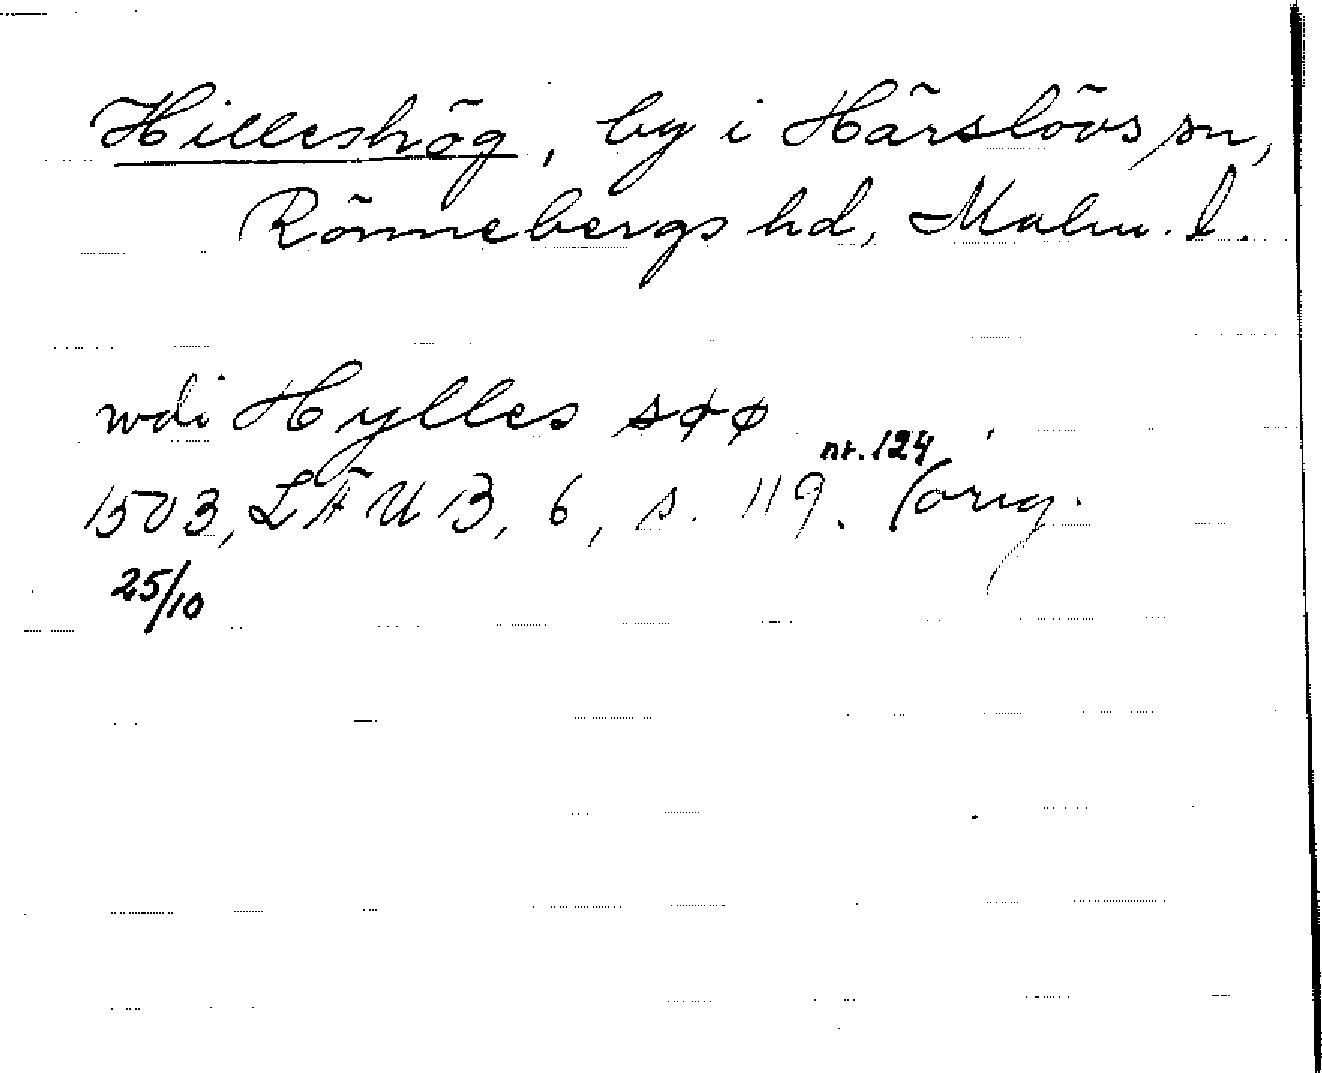 Hilleshög, by i Härslövs sn,
Rönnebergs hd, Malm. l.
wdi Hylles søø
nr. 124
1503, LÄUB, 6, s. 119. (orig.
25/10